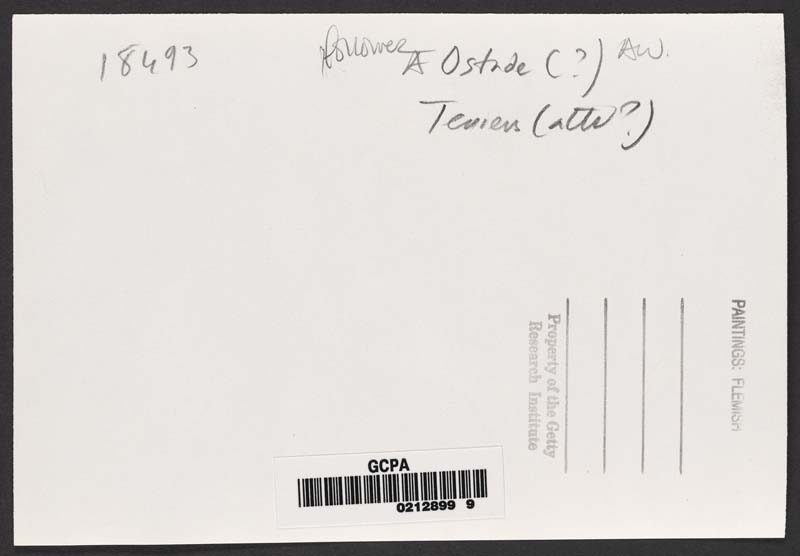 18493
follower A Ostade (?) AW.
Teniers (attr?)
PAINTINGS: FLEMISH
Property of the Getty
Research Institute
GCPA
0212899 9